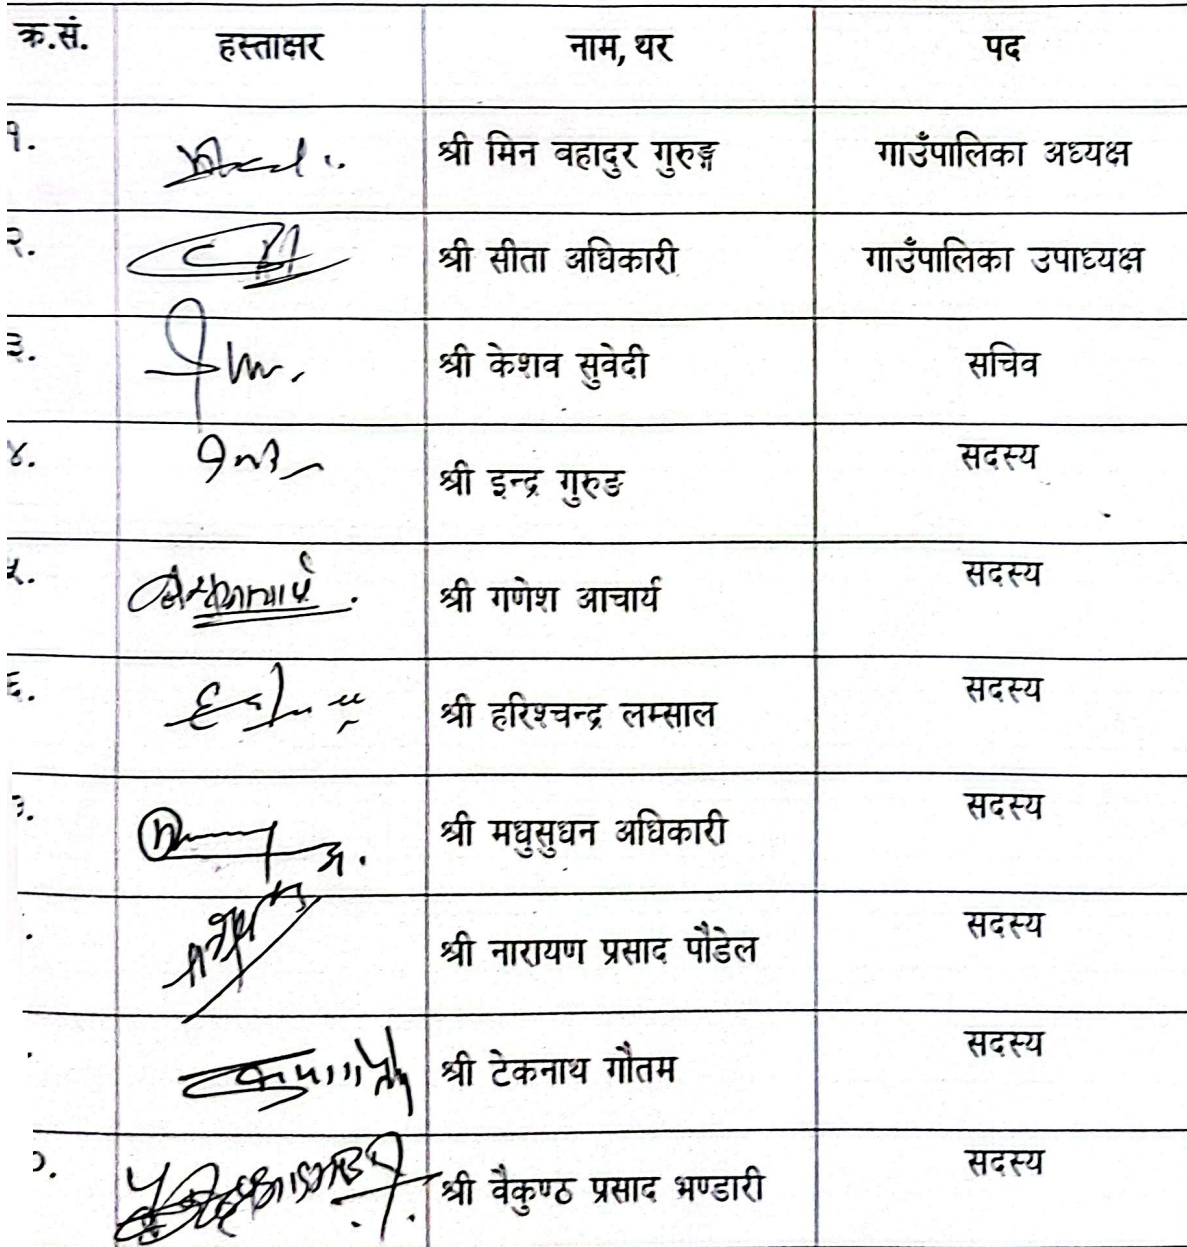 क्र.सं. हस्ताक्षर नाम, थर पद
१. श्री मिन वहादुर गुरुङ्ग गाउँपालिका अध्यक्ष
२. श्री सीता अधिकारी गाउँपालिका उपाध्यक्ष
३. श्री केशव सुवेदी सचिव
४. श्री इन्द्र गुरुङ सदस्य
५. श्री गणेश आचार्य सदस्य
६. श्री हरिश्चन्द्र लम्साल सदस्य
७. श्री मधुसुधन अधिकारी सदस्य
श्री नारायण प्रसाद पौडेल सदस्य
श्री टेकनाथ गौतम सदस्य
०. श्री वैकुण्ठ प्रसाद भण्डारी सदस्य